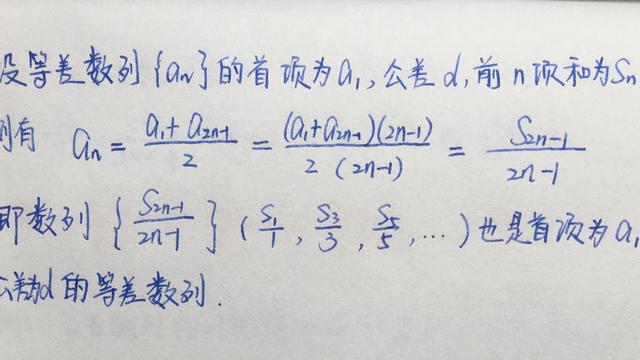 设等差数列{an}的首项为a₁,公差d,前n项和为Sn
则有 an = (a₁+a₂ₙ₋₁)/2 = (a₁+a₂ₙ₋₁)(2n-1)/2(2n-1) = S₂ₙ₋₁/(2n-1)
即数列 {S₂ₙ₋₁/(2n-1)} (S₁/1, S₃/3, S₅/5, …)也是首项为a₁
公差为d的等差数列.